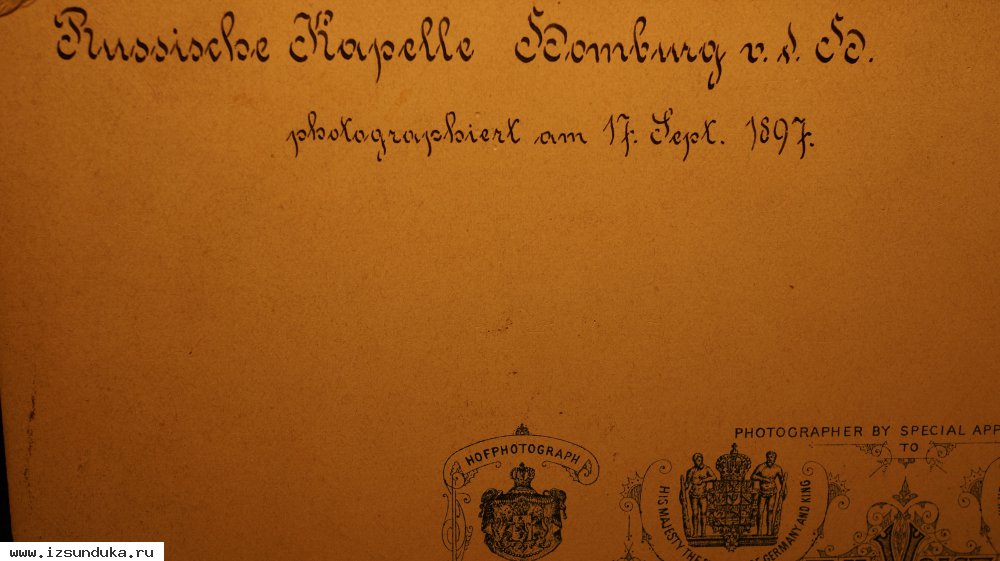 Russische Kapelle Homburg v. d. H.
photographiert am 17. Sept. 1897.
PHOTOGRAPHER BY SPECIAL APP
TO
HOFPHOTOGRAPH
HIS MAJESTY THE GERMANY AND KING
www.izsunduka.ru